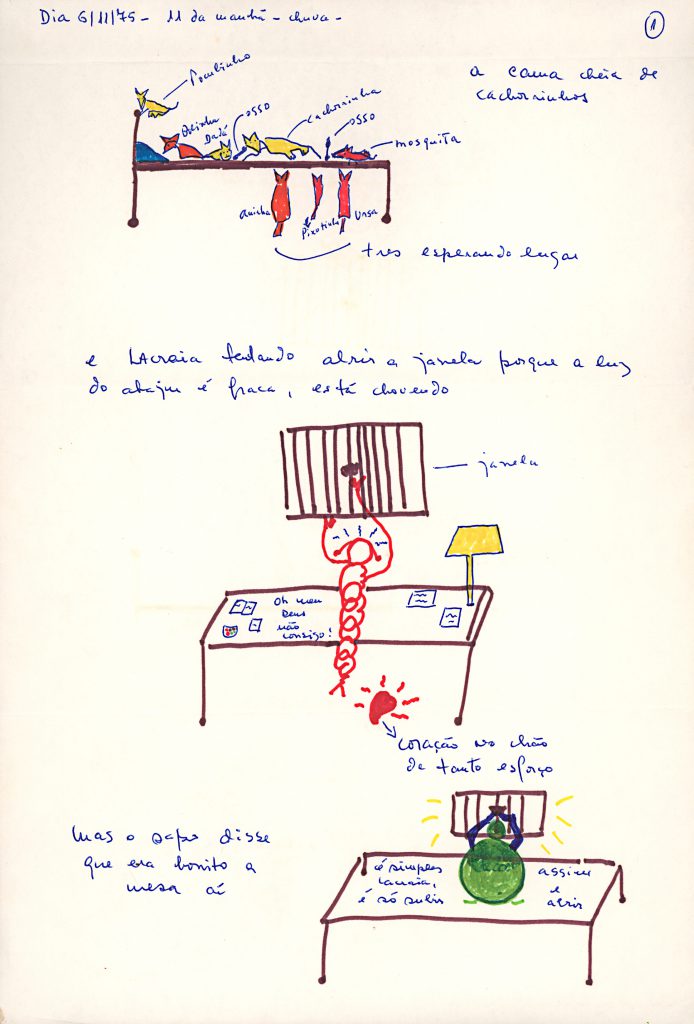 Dia 6/11/75 - 11 da manhã - chuva -
1
a cama cheia de
cachorrinhos
osso
cachorrinha
osso
mosquita
Dadá
Pixotinha
Ursa
tres esperando lugar
e LAcraia tentando abrir a janela porque a luz
do abajur é fraca, está chovendo
janela
Oh meu
Deus
não
consigo!
coração no chão
de tanto esforço
mas o sapo disse
que era bonito a
mesa aí
é simples
Lacraia,
é só subir
assim
e
abrir